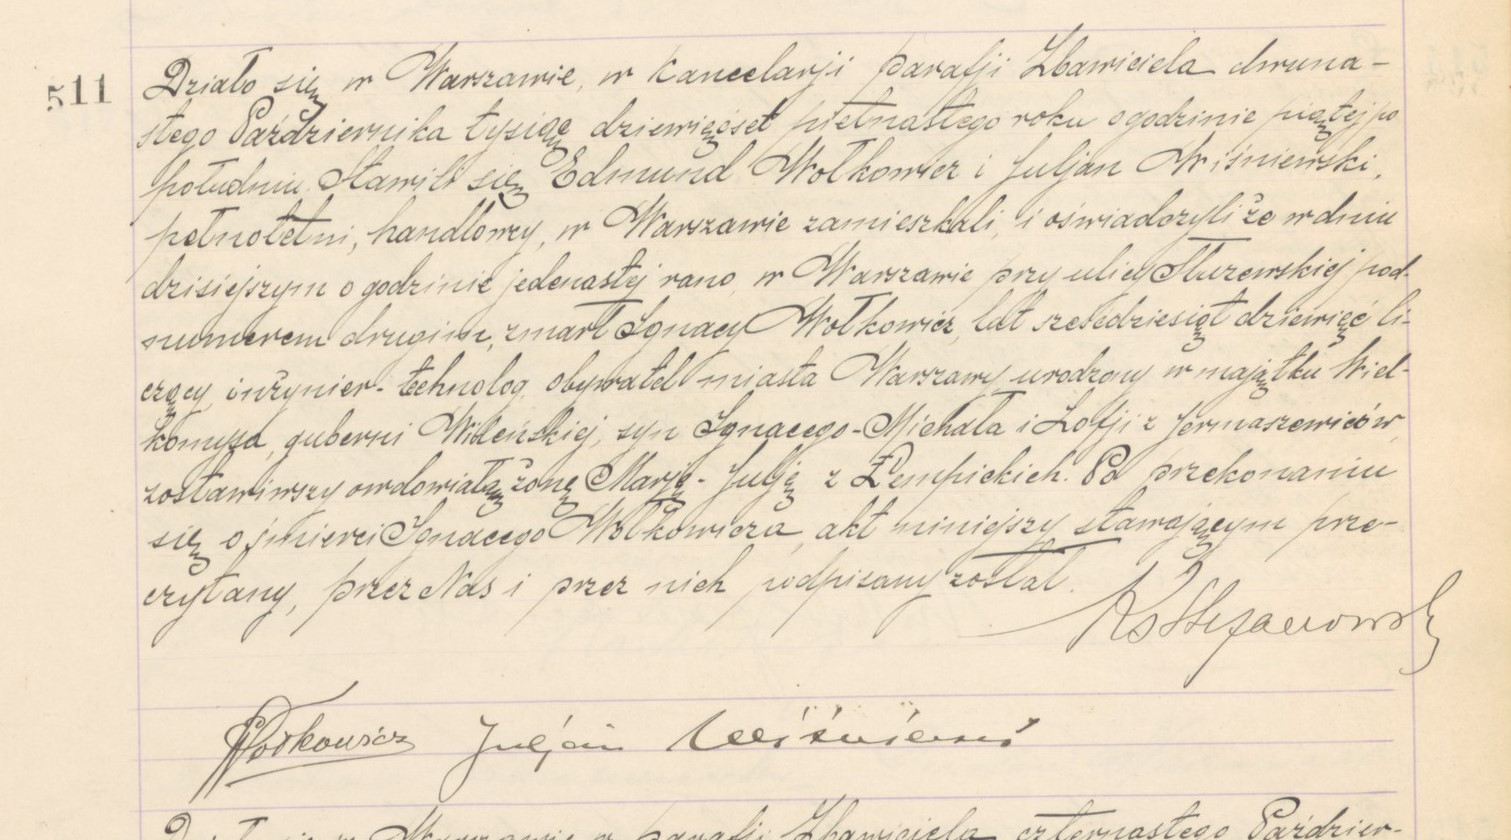 511
Działo się w Warszawie, w kancelarji parafji Zbawiciela dwuna-
stego Października tysiąc dziewięćset piętnastego roku o godzinie piątej po
południu. Stawili się Edmund Wołkowicz i Juljan Wiśniewski,
pełnoletni, handlowcy, w Warszawie zamieszkali, i oświadczyli że w dniu
dzisiejszym o godzinie jedenastej rano, w Warszawie przy ulicy Służewskiej pod
numerem drugim, zmarł Ignacy Wołkowicz, lat sześćdziesiąt dziewięć li-
czący, inżynier-technolog, obywatel miasta Warszawy urodzony w majątku Wieł-
komyża, guberni Wileńskiej, syn Ignacego-Michała i Zofji z Jermaszewiców,
zostawiwszy owdowiałą żonę Marję-Julję z Łempickich. Po przekonaniu
się o śmierci Ignacego Wołkowicza, akt niniejszy stawającym prze-
czytany, przez Nas i przez nich podpisany został.
Ks Stefanowski
Wołkowicz Juljan Wiśniewski
w Warszawie w parafji Zbawiciela czternastego Paździer-